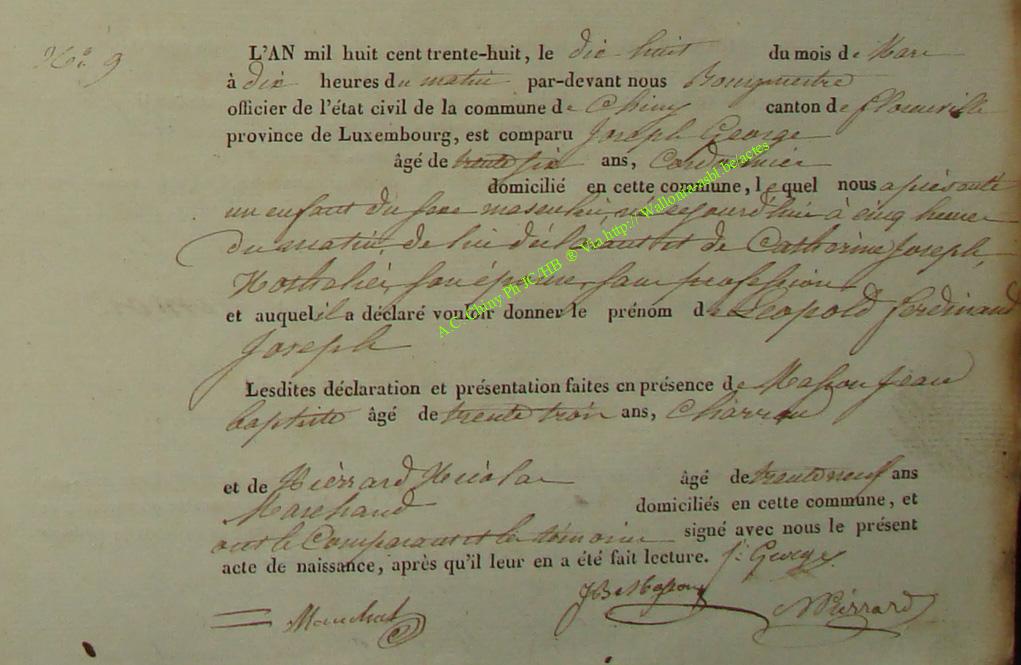 N° 9
L'AN mil huit cent trente-huit, le dix huit du mois de Mars
à dix heures du matin par-devant nous Bourgmestre
officier de l'état civil de la commune de Chiny canton de florenville
province de Luxembourg, est comparu Joseph George
âgé de trente six ans, Cordonnier
domicilié en cette commune, lequel nous a présenté
un enfant du sexe masculin, né cejourd'hui à cinq heures
du matin, de lui déclarant et de Catherine Joseph
son épouse, sans profession
et auquel il a déclaré vouloir donner le prénom de Léopold ferdinand
Joseph
Lesdites déclaration et présentation faites en présence de Masson jean
baptiste âgé de trente trois ans, Charron
et de Piérrard Nicolas âgé de trente neuf ans
Marchand domiciliés en cette commune, et
ont le Comparant et le témoins signé avec nous le présent
acte de naissance, après qu'il leur en a été fait lecture. J: George
JB Masson
NPiérrard
A.C. Chiny Ph JC/HB ® Via http:// Walloniensbl.be/actes